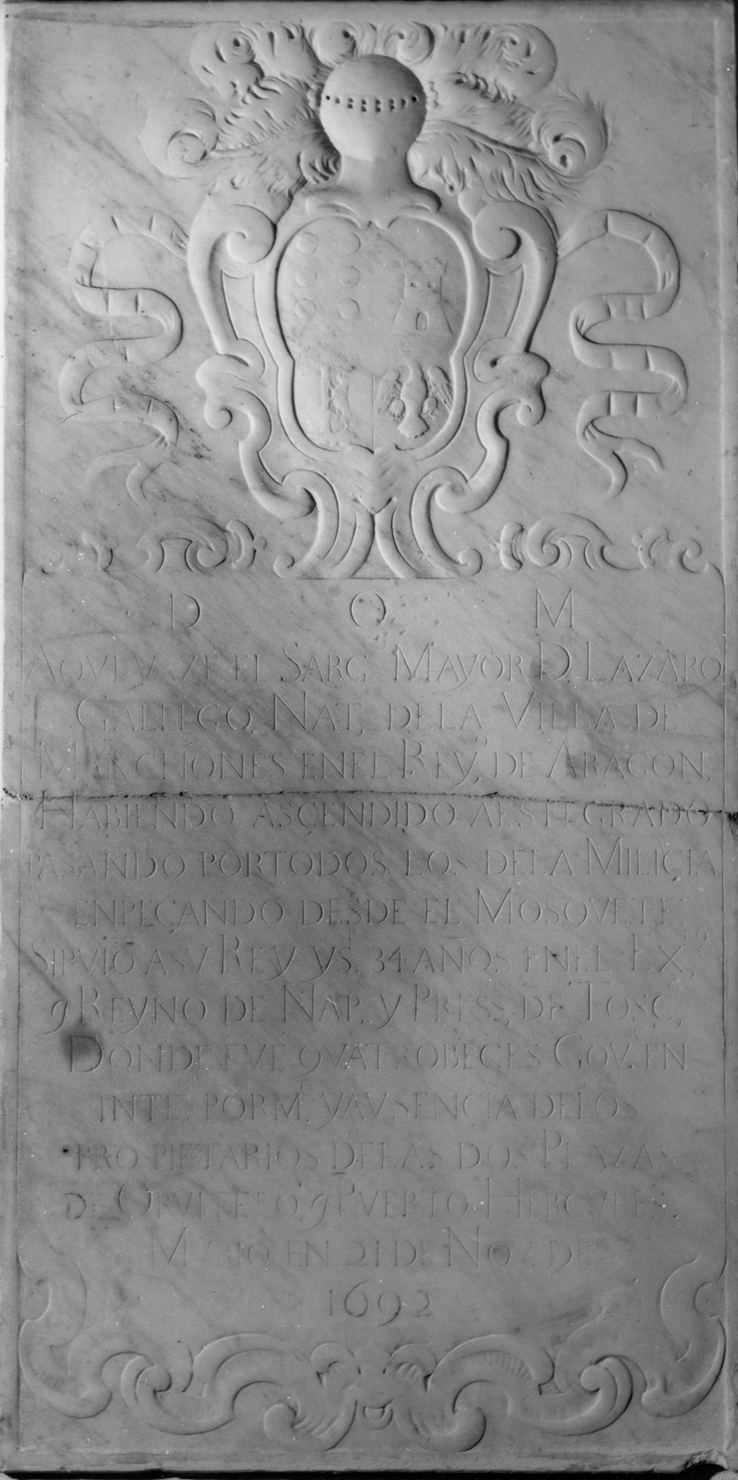 D O M
AQVI YAZE EL SARG MAYOR D LAZARO
GALLEGO, NAT, DELA VILLA DE
MANCHONES ENEL REYº, DE ARAGON,
HABIENDO ASCENDIDO AESTEGRADO
PASANDO PORTODOS LOS DELA MILICIA
ENPEÇANDO DESDE EL MOSQVETE
SIRVIO ASV REY YS. 34 AÑOS ENEL EXto,
y REYNO DE NAP, y PRESS, DE TOSC,
DONDE FVE QVATROBECES GOV. EN
INTE, PORM, YAVSENCIA DELOS
PROPIETARIOS DELAS DOS PLAZAS
DE ORVITELO, y PVERTO HERCVLES,
MVRIO EN 21 DE NOV. DE
1692